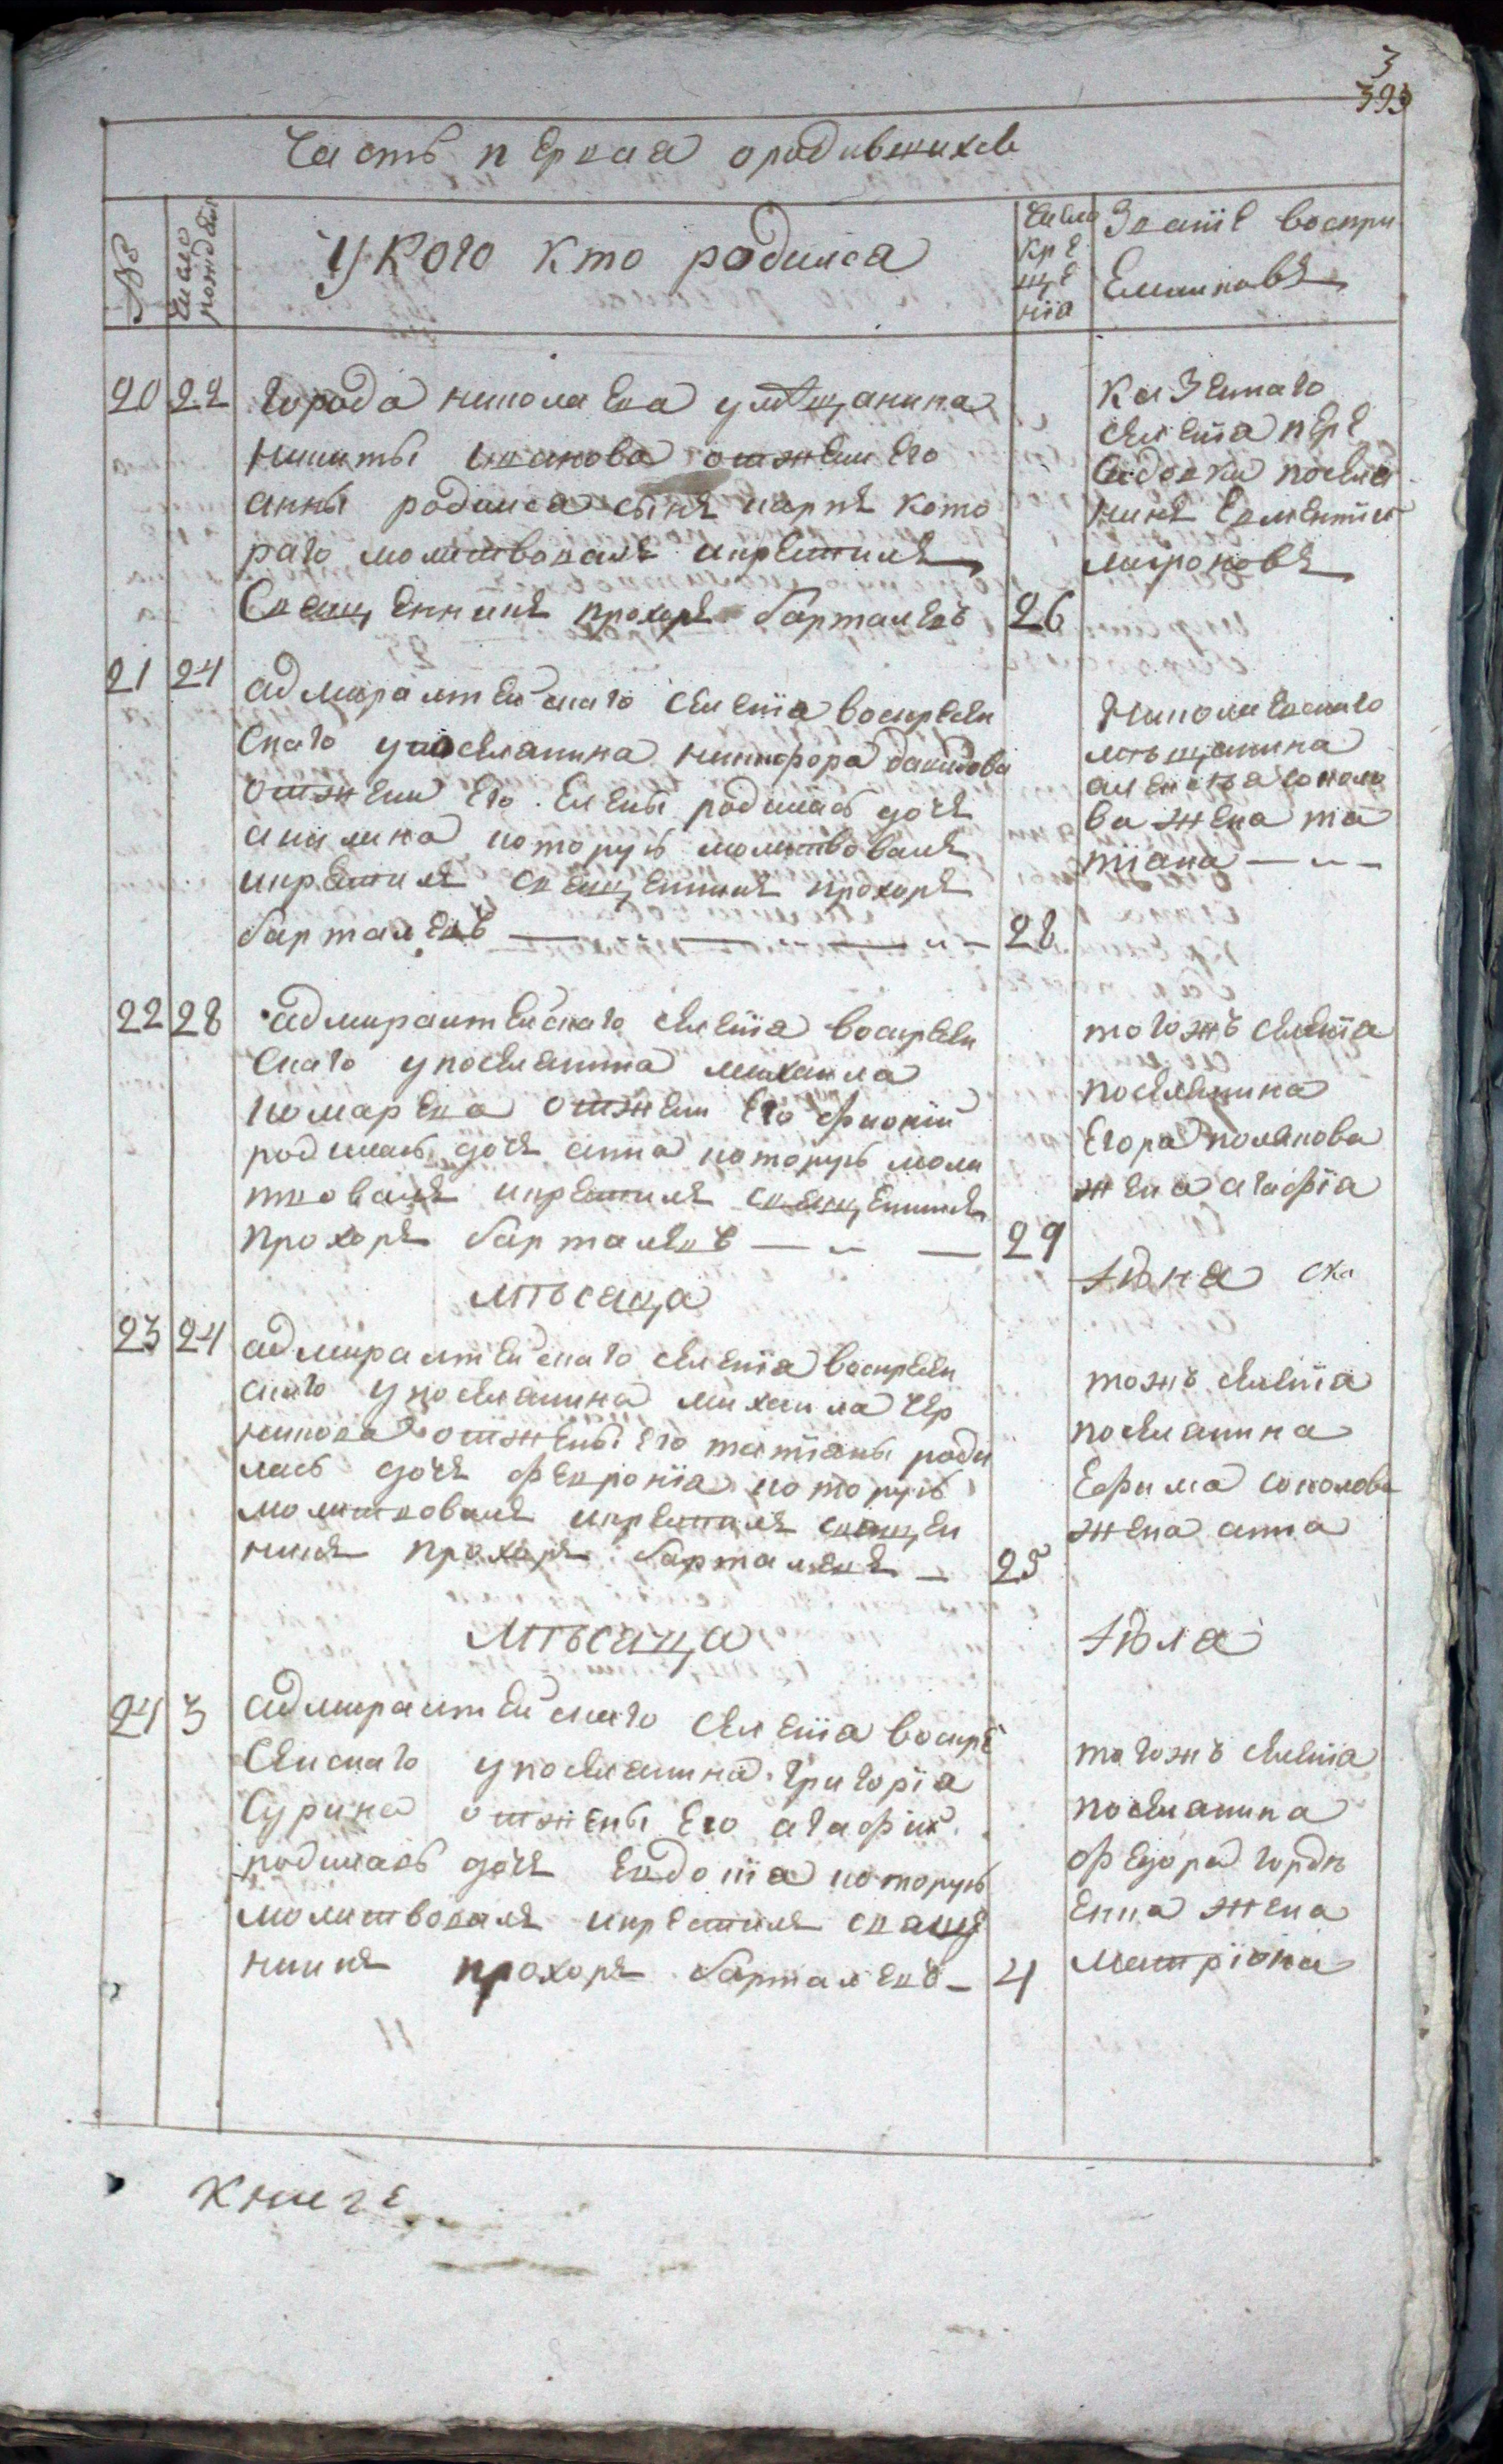 3
393
Часть первая ородившихся
№
Число рождѣн
У кого кто родился
Число
кре
ще
нїа
Званїе воспри
Емниковъ
20 22 города николаева умѣщанина
никиты иванова отжени его
анны родился сынъ карпъ кото
раго молитвовалъ икрестилъ
Священникъ прохоръ барталевъ 26
казеннаго
селенїа пере
садовки поселя
нинъ
мироновъ
21 24 адмиралтейскаго селенїа воскресен
Скаго упоселянина никифора давидова
отжени его Елены родилась дочъ
акилина которую молитвовалъ
икрестилъ священникъ прохоръ
барталевъ — „ — — „ — 28
Николаевскаго
мѣщанина
алексѣя соколо
ва жена та
тїана — „ —
22 28 адмиралтейскаго селенїа воскресен
Скаго упоселянина михаила
комарева отжени его фионїи
родилась дочъ анна которую моли
твовалъ икрестилъ священникъ
прохоръ барталевъ — „ — 29
тогожъ селенїа
поселянина
Егора полякова
жена агафїа
мѣсяца Іюна
23 24 адмиралтейскаго селенїа воскресен
скаго упоселянина михаила чер
никова отжены его татїаны роди
лась дочъ февронїа которую
молитвовалъ икрестилъ священ
никъ прохоръ барталевъ — 25
тожъ селенїа
поселянина
Ефима соколова
жена анна
мѣсяца Іюла
24 3 адмиралтейскаго селенїа воскре
Сенскаго упоселянина григорїа
Сурина отжены его агафии
родилась дочъ Евдокїа которую
молитвовалъ икрестилъ свяще
никъ прохоръ барталевъ — 4
тогожъ селенїа
поселянина
федора гордѣ
Енка жена
матрїона
книге